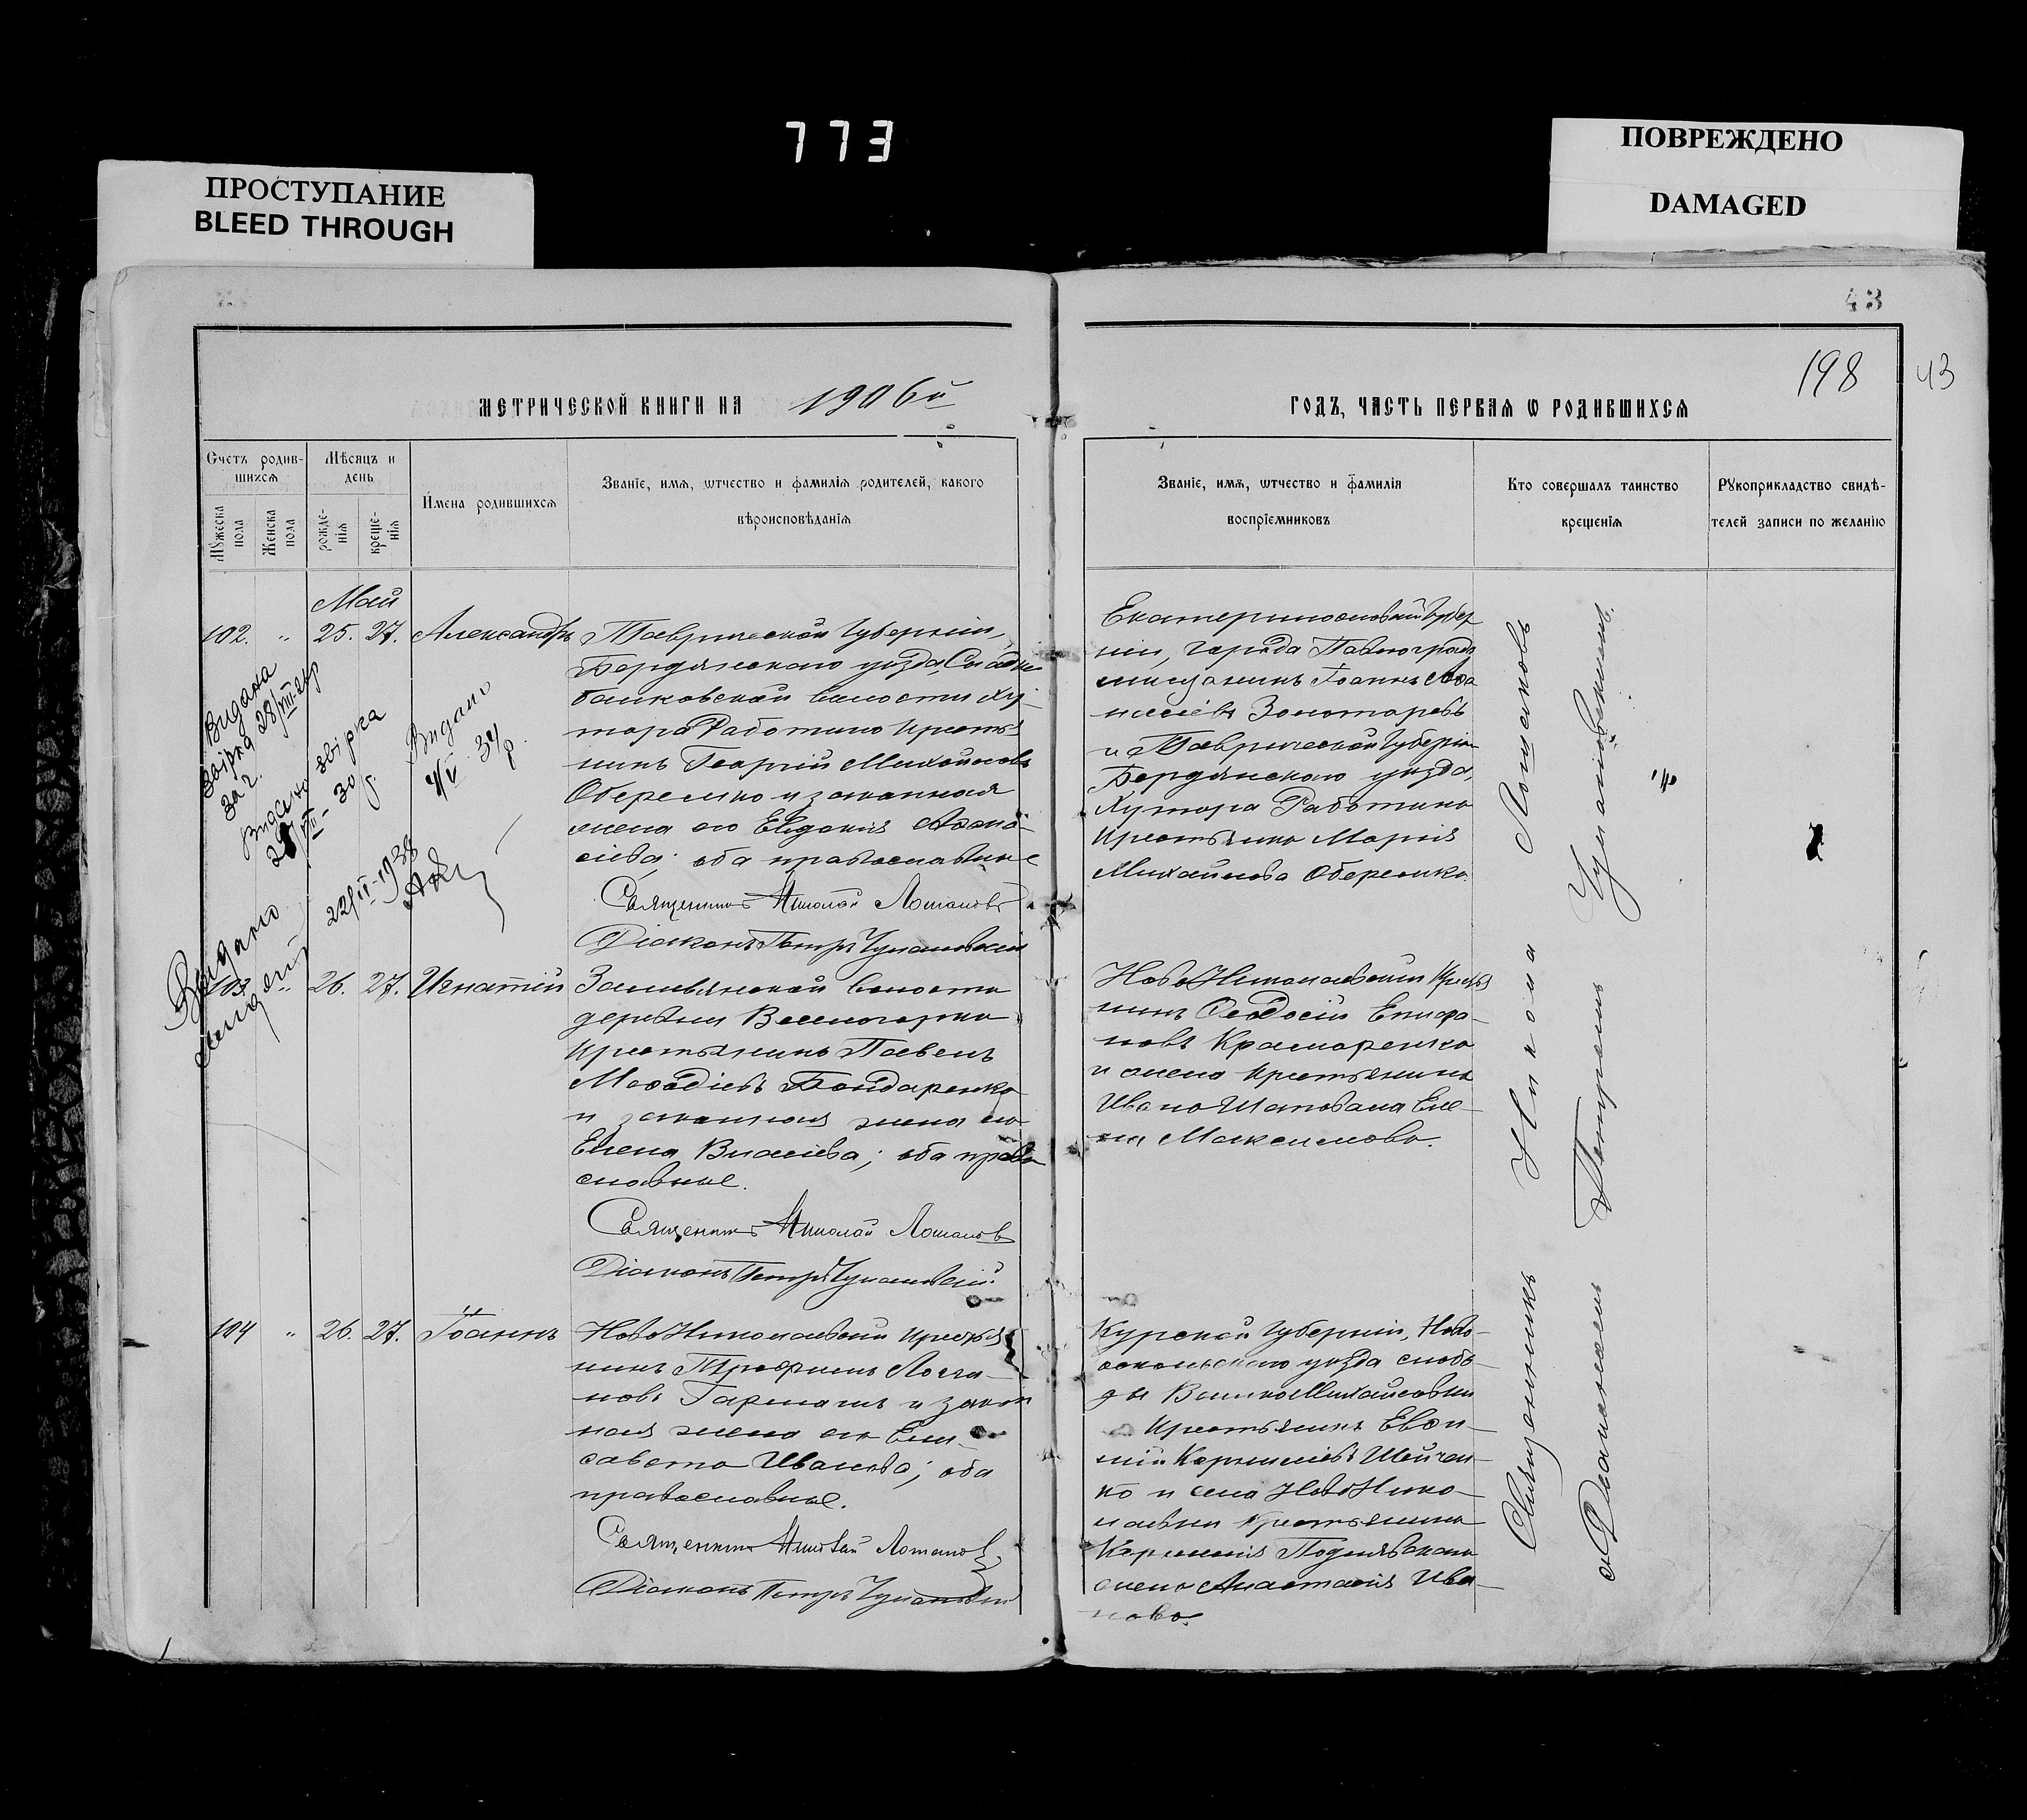 773
ПРОСТУПАНИЕ
BLEED THROUGH
ПОВРЕЖДЕНО
DAMAGED
43
198
43
МЕТРИЧЕСКОЙ КНИГИ НА 1906й
ГОДЪ, ЧАСТЬ ПЕРВАѦ Ѡ РОДИВШИХСѦ
Счетъ родив-
шихсѧ
Мѣсяцъ и
день
Мꙋжеска
пола
Женска
пола
рожде-
нїѧ
креще-
нїѧ
Имена родившихсѧ
Званїе, имѧ, ѡтчество и фамилїѧ родителей, какого
вѣроисповѣданїѧ
Званїе, имѧ, ѡтчество и фамилїѧ
воспрїемниковъ
Кто совершалъ таинство
крещенїѧ
Рꙋкоприкладство свидѣ-
телей записи по желанїю
Май
102. " 25. 27. Александръ
Таврической Губерніи,
Бердянскаго уѣзда,
волости ху-
тора Работино кресть-
янинъ Георгій Михайловъ
Обережко и законная
жена его Евдокія
оба православные
Священникъ Николай Лошаковъ
Діаконъ Петръ
Екатеринославской Губер
ніи, города Павлограда
мѣщанинъ Іоаннъ
Золотаревъ
и Таврической Губерніи
Бердянскаго уѣзда,
хутора Работино
крестьянка Марія
Михайлова Обережко.
Видана
звірка 28/VIII-29р
за 2.
Видано звірка
30р.
Видано
22/II-1938
Видано
103 " 26. 27. Игнатій
волости
деревни Веселогорка
крестьянинъ Павелъ
Меѳодіевъ Бондаренко
и законная жена его
Елена Власіева; оба право
славные.
Священникъ Николай Лошаковъ
Діаконъ Петръ
НовоНиколаевскій кресть
янинъ Ѳеодосій Епифа-
новъ Крамаренко
и жена крестьянина
Ивана Шаповала Еле-
на Максимова.
104 " 26. 27. Іоаннъ
НовоНиколаевскій крестья
нинъ Трофимъ
новъ и закон
ная жена его Ели-
савета Иванова; оба
православные.
Священникъ Николай Лошаковъ
Діаконъ Петръ
Курской Губерніи, Ново-
оскольскаго уѣзда слобо-
ды ВеликоМихайловки
крестьянинъ Евѳи-
мій Корниліевъ Шейчен-
ко и села НовоНико-
лаевки крестьянина
Корнилія
жена Анастасія Ива-
нова.
Священникъ Никола Лошаковъ
съ Діакономъ Петромъ